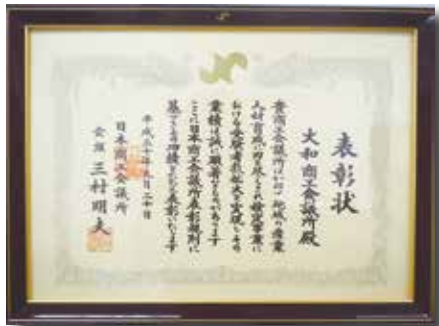 表彰状
大和商工会議所殿
貴商工会議所におかれては地域の産業
人材育成に力を尽くされ検定事業に
おける受験者数拡大を実現しその
業績は誠に顕著なるものがあります
ここに日本商工会議所表彰規則に
基づきその功績をたたえ表彰いたします
平成三十年九月二十日
日本商工会議所
会頭 三村明夫